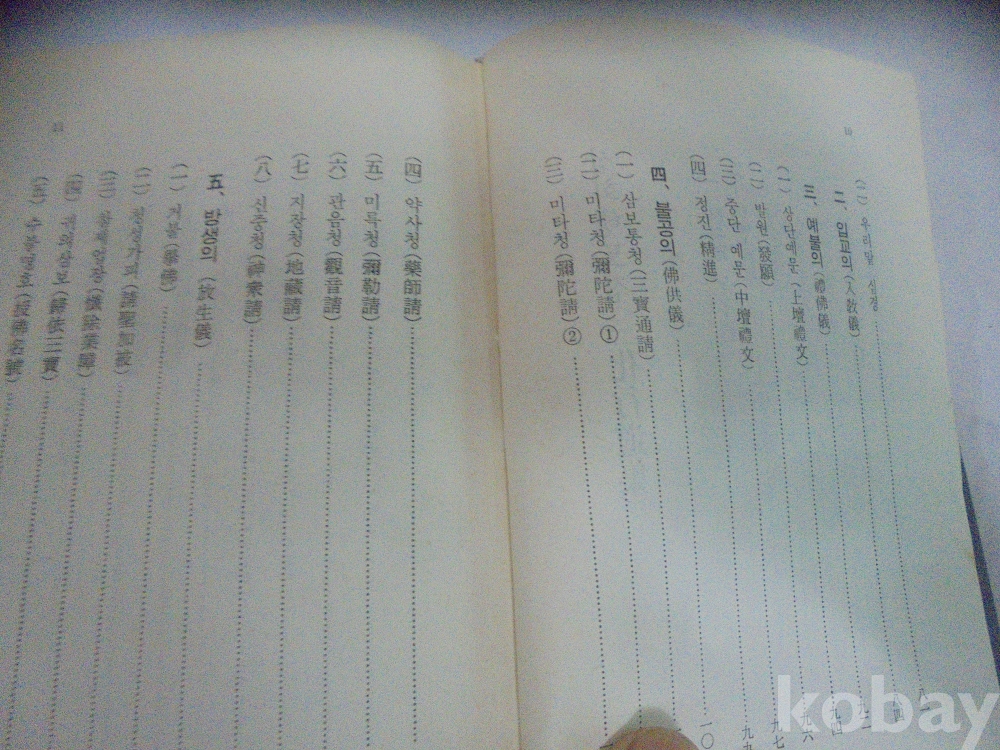 10
(二) 우리말
二、입교의 (入敎儀)
三、예불의 (禮佛儀)
(一) 상단예문 (上壇禮文) 九六
(二) 발원 (發願) 九七
(三) 중단 예문 (中壇禮文) 九九
(四) 정진 (精進) 一〇
四、불공의 (佛供儀)
(一) 삼보통청 (三寶通請)
(二) 미타청 (彌陀請) ①
(三) 미타청 (彌陀請) ②
11
(四) 약사청 (藥師請)
(五) 미륵청 (彌勒請)
(六) 관음청 (觀音請)
(七) 지장청 (地藏請)
(八) 신중청 (神衆請)
五、방생의 (放生儀)
(一) 거불 (擧佛)
(二) (請聖加被)
(三) (懺除業障)
(四) (歸依三寶)
(五)
kobay